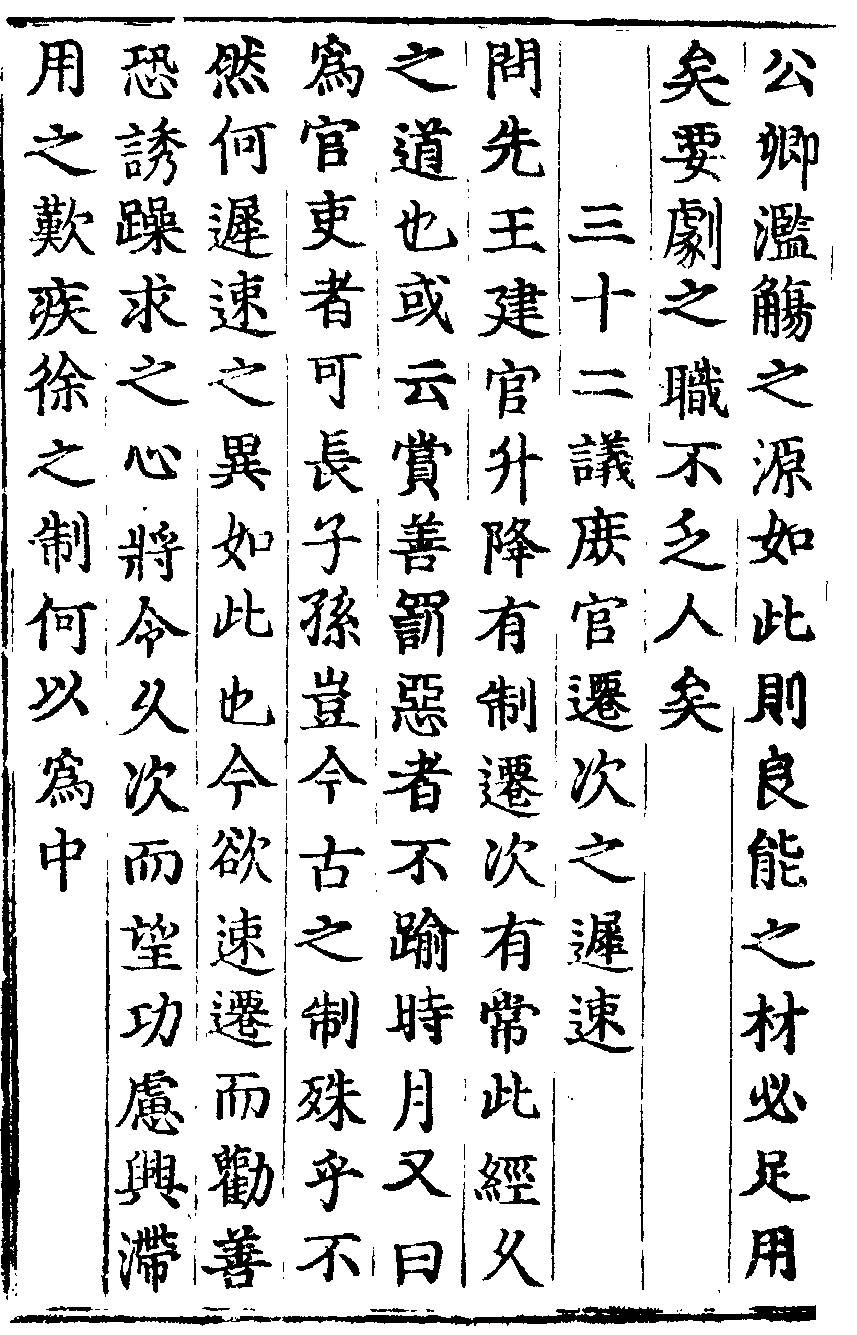 公卿濫觴之源如此則良能之材必足用
矣要劇之職不乏人矣
三十二議庻官遷次之遲速
問先王建官升降有制遷次有常此經久
之道也或云賞善罰惡者不踰時月又曰
爲官吏者可長子孫豈今古之制殊乎不
然何遲速之異如此也今欲速遷而勸善
恐誘躁求之心將令久次而望功慮興滯
用之歎疾徐之制何以爲中